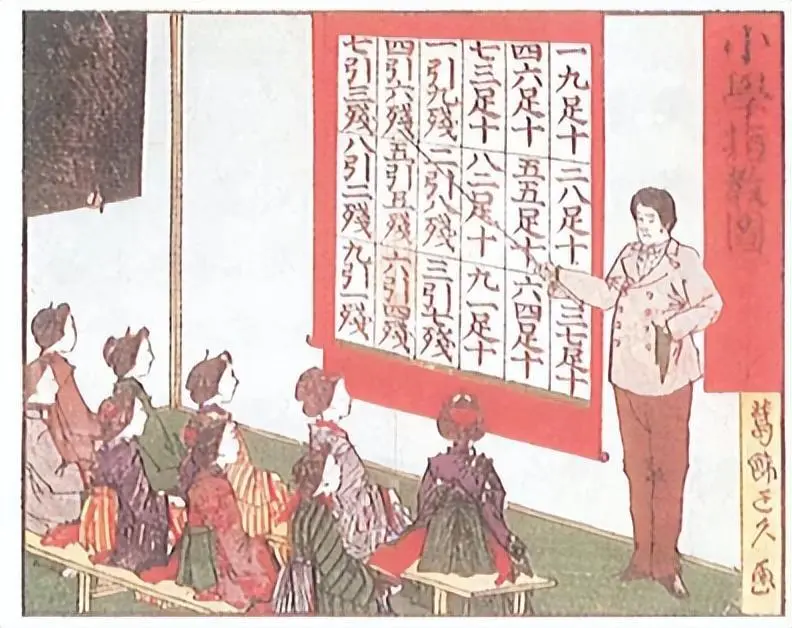 小學指教圖
一九足十 二八足十 三七足十
四六足十 五五足十 六四足十
七三足十 八二足十 九一足十
一引九殘 二引八殘 三引七殘
四引六殘 五引五殘 六引四殘
七引三殘 八引二殘 九引一殘
葛飾正久画